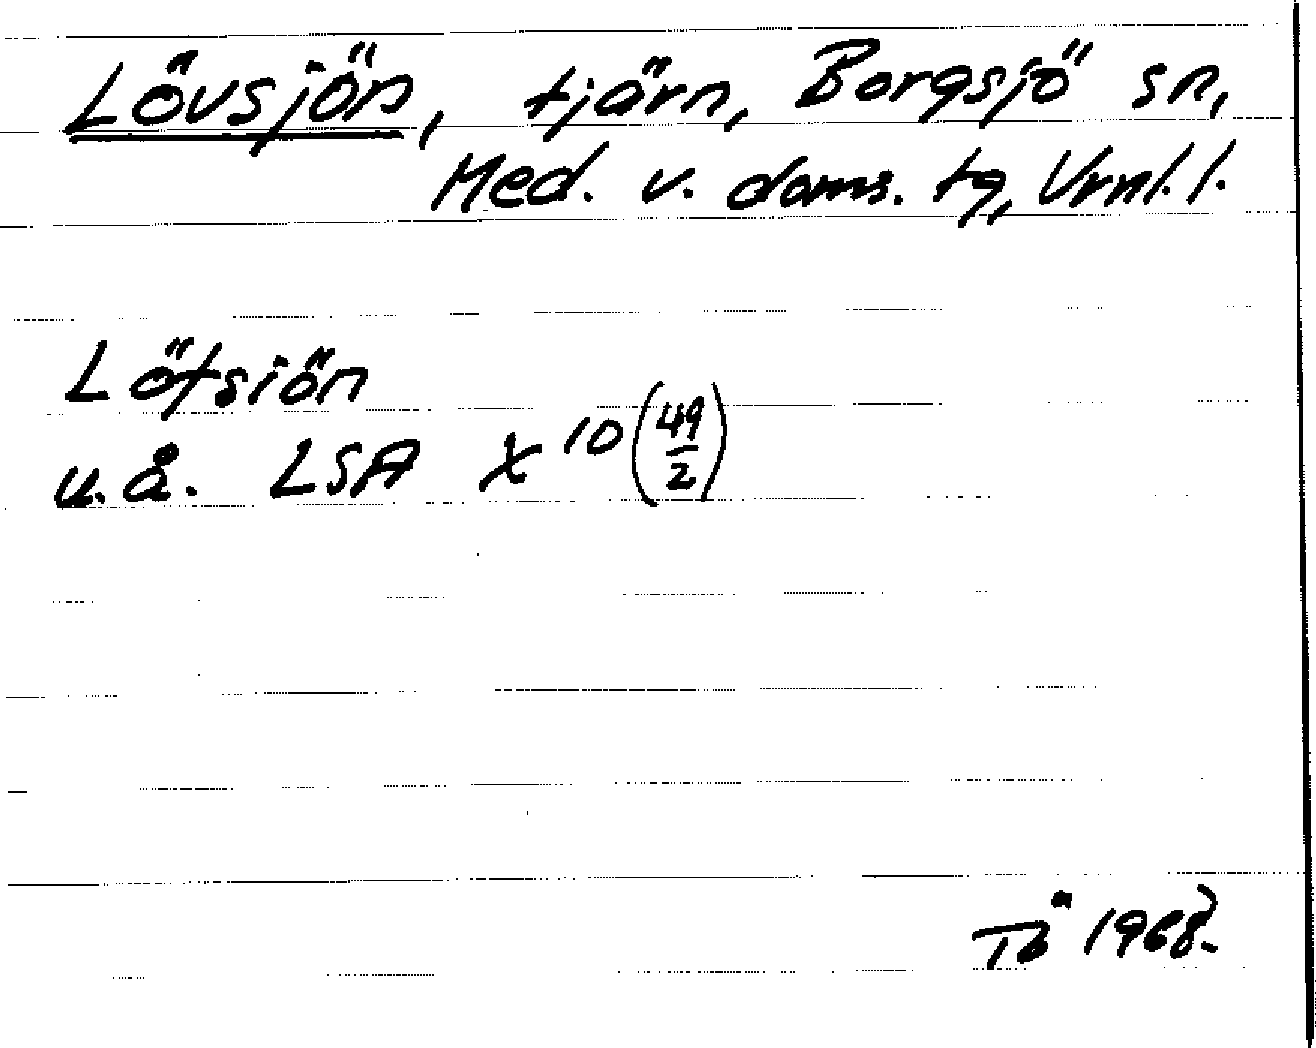 Lövsjön, tjärn, Borgsjö sn,
Med. v. doms. tg, Vrml. l.
Löfsiön
u.å. LSA X 10 (49/2)
Tö 1968.